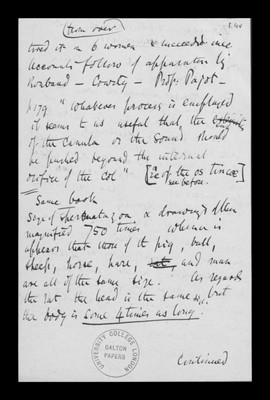 (turn over)
tried it on 6 women & succeeded in
Accounts follow of apparatus by
Rouband — Courty — Prof: Pajot —
p179 "Whatever process is employed
it seems to us useful that the
of the Canula or the Sound should
be pushed beyond the internal
orifice of the Col" [ie of the os tincæ]
see before.
Same book
Size of spermatozoon & drawings of them
magnified 750 times whence it
appears that those of the pig, bull,
sheep, horse, hare, and man
are all of the same size. As regards
the rat the head is the same but
the body is some 4 times as long.
UNIVERSITY COLLEGE LONDON
GALTON
PAPERS
Continued